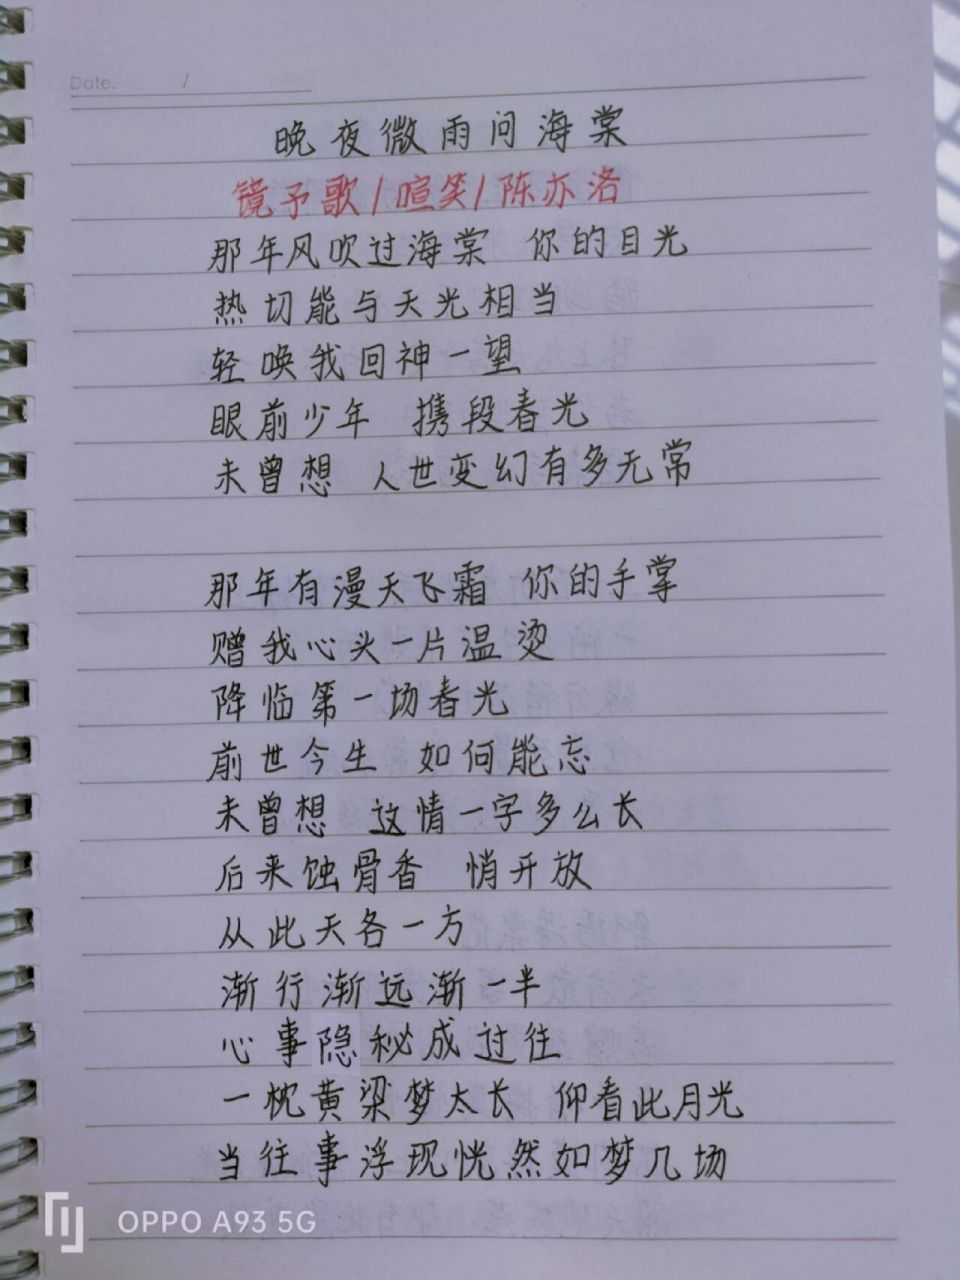 Date. /
晚夜微雨问海棠
镜予歌/喧笑/陈亦洛
那年风吹过海棠 你的目光
热切能与天光相当
轻唤我回神一望
眼前少年 携段春光
未曾想 人世变幻有多无常
那年有漫天飞霜 你的手掌
赠我心头一片温烫
降临第一场春光
前世今生 如何能忘
未曾想 这情一字多么长
后来蚀骨香 悄开放
从此天各一方
渐行渐远渐一半
心事隐秘成过往
一枕黄梁梦太长 仰看此月光
当往事浮现恍然如梦几场
OPPO A93 5G